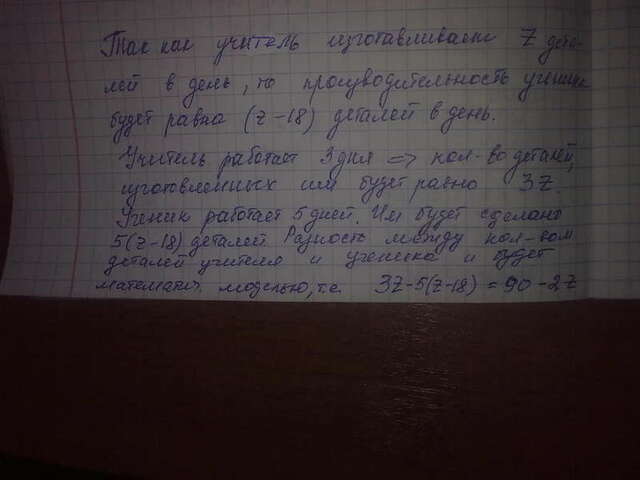 Так как учитель изготавливает Z дета-
лей в день, то производительность ученика
будет равна (z-18) деталей в день.
Учитель работает 3 дня => кол-во деталей,
изготовленных им будет равно 3Z.
Ученик работает 5 дней. Им будет сделано
5(z-18) деталей. Разность между кол-вом
деталей учителя и ученика и будет
математич. моделью, т.е. 3Z-5(Z-18)=90-2Z